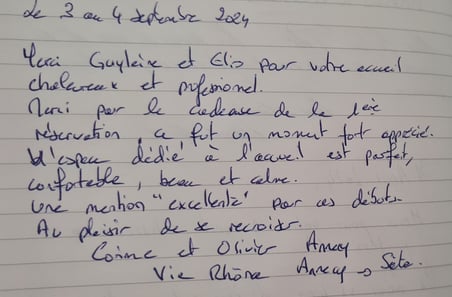 Le 3 au 4 septembre 2024
Merci Guylène et Elio pour votre accueil
chaleureux et professionnel.
Merci pour le cadeau de la 1ère
réservation, ce fut un moment fort apprécié.
L'espace dédié à l'accueil est parfait,
confortable, beau et calme.
Une mention "excellente" pour ces débuts.
Au plaisir de se recroiser.
Corinne et Olivier Annecy
Via Rhôna Annecy → Sète.